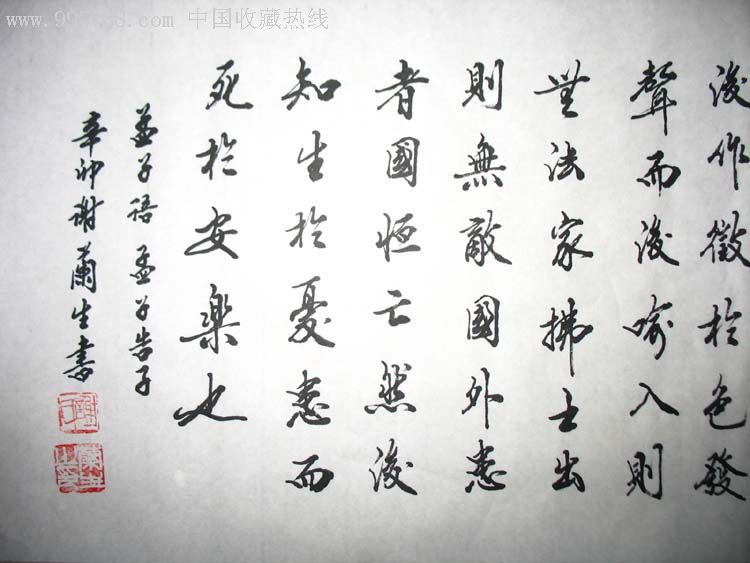 www.997788.com 中国收藏热线
後作徵於色發
聲而後喻入則
無法家拂士出
則無敵國外患
者國恒亡然後
知生於憂患而
死於安樂也
孟子語 孟子告子
辛卯謝蘭生書